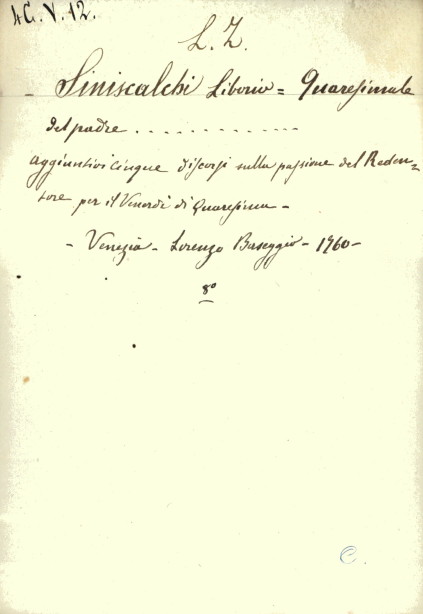 4G.V.12.
L. Z.
- Siniscalchi Liborio = Quaresimale
del padre . . . . . . . . . . . .
aggiuntivi cinque discorsi sulla passione del Reden=
tore per il Venerdì di Quaresima -
- Venezia - Lorenzo Baseggio - 1760 -
8º
C.